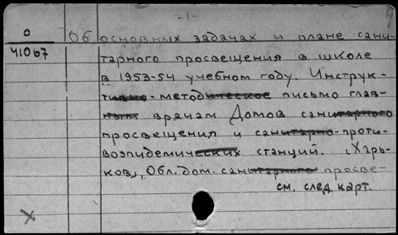 -1-
0
41067
Об основных задачах и плане сани-
тарного просвещения в школе
в 1953-54 учебном году. Инструк-
тивно-методическое письмо глав-
ным врачам Домов санитарного
просвещения и санитарно-проти-
воэпидемических станций. [Харь-
ков], Обл. дом. санитарного просве-
см. след. карт.